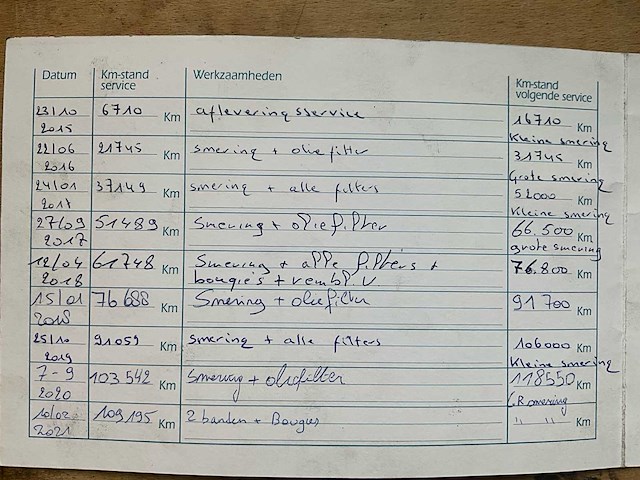 Datum Km-stand service Werkzaamheden Km-stand volgende service
23/10 2015 6710 Km afleveringsservice 16710 Km
Kleine smering
22/06 2016 21745 Km smering + oliefilter 31745 Km
Grote smering
24/01 2017 37149 Km smering + alle filters 52000 Km
Kleine smering
27/09 2017 51489 Km Smering + oliefilter 66.500 Km
grote smering
12/04 2018 61748 Km Smering + alle filters + 76.800 Km
bougie's + rembl.v
15/01 76688 Km Smering + oliefilter 91700 Km
25/10 2019 91059 Km smering + alle filters 106000 Km
Kleine smering
7-9 2020 103542 Km Smering + oliefilter 118550 Km
GR smering
10/02 2021 109195 Km 2 banden + Bougies " " Km